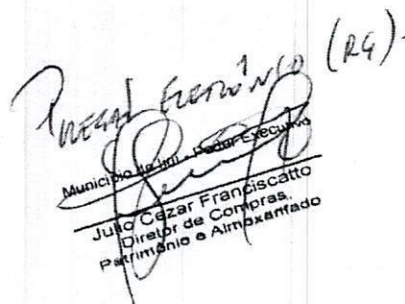 Pregão Eletrônico (RG).
Município de - Poder Executivo
Julio Cezar Franciscatto
Diretor de Compras,
Patrimônio e Almoxarifado